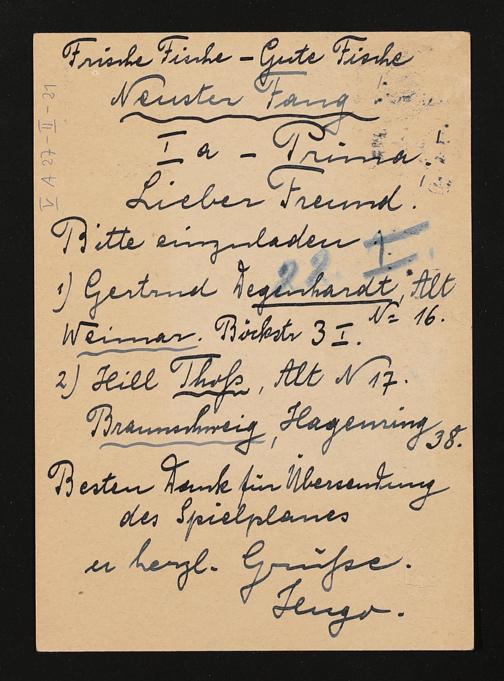 Frische Fische - Gute Fische
Neuster Fang
Ia - Prima
Lieber Freund.
Bitte einzuladen:
22. I.
1) Gertrud Degenhardt, Alt
No 16.
Weimar. Böckstr 3 I.
2) Hill Thoß, Alt N 17.
Braunschweig, Hagenring
38.
Besten Dank für Übersendung
des Spielplanes
u herzl. Grüße.
Hugo.
V A 27-II-21